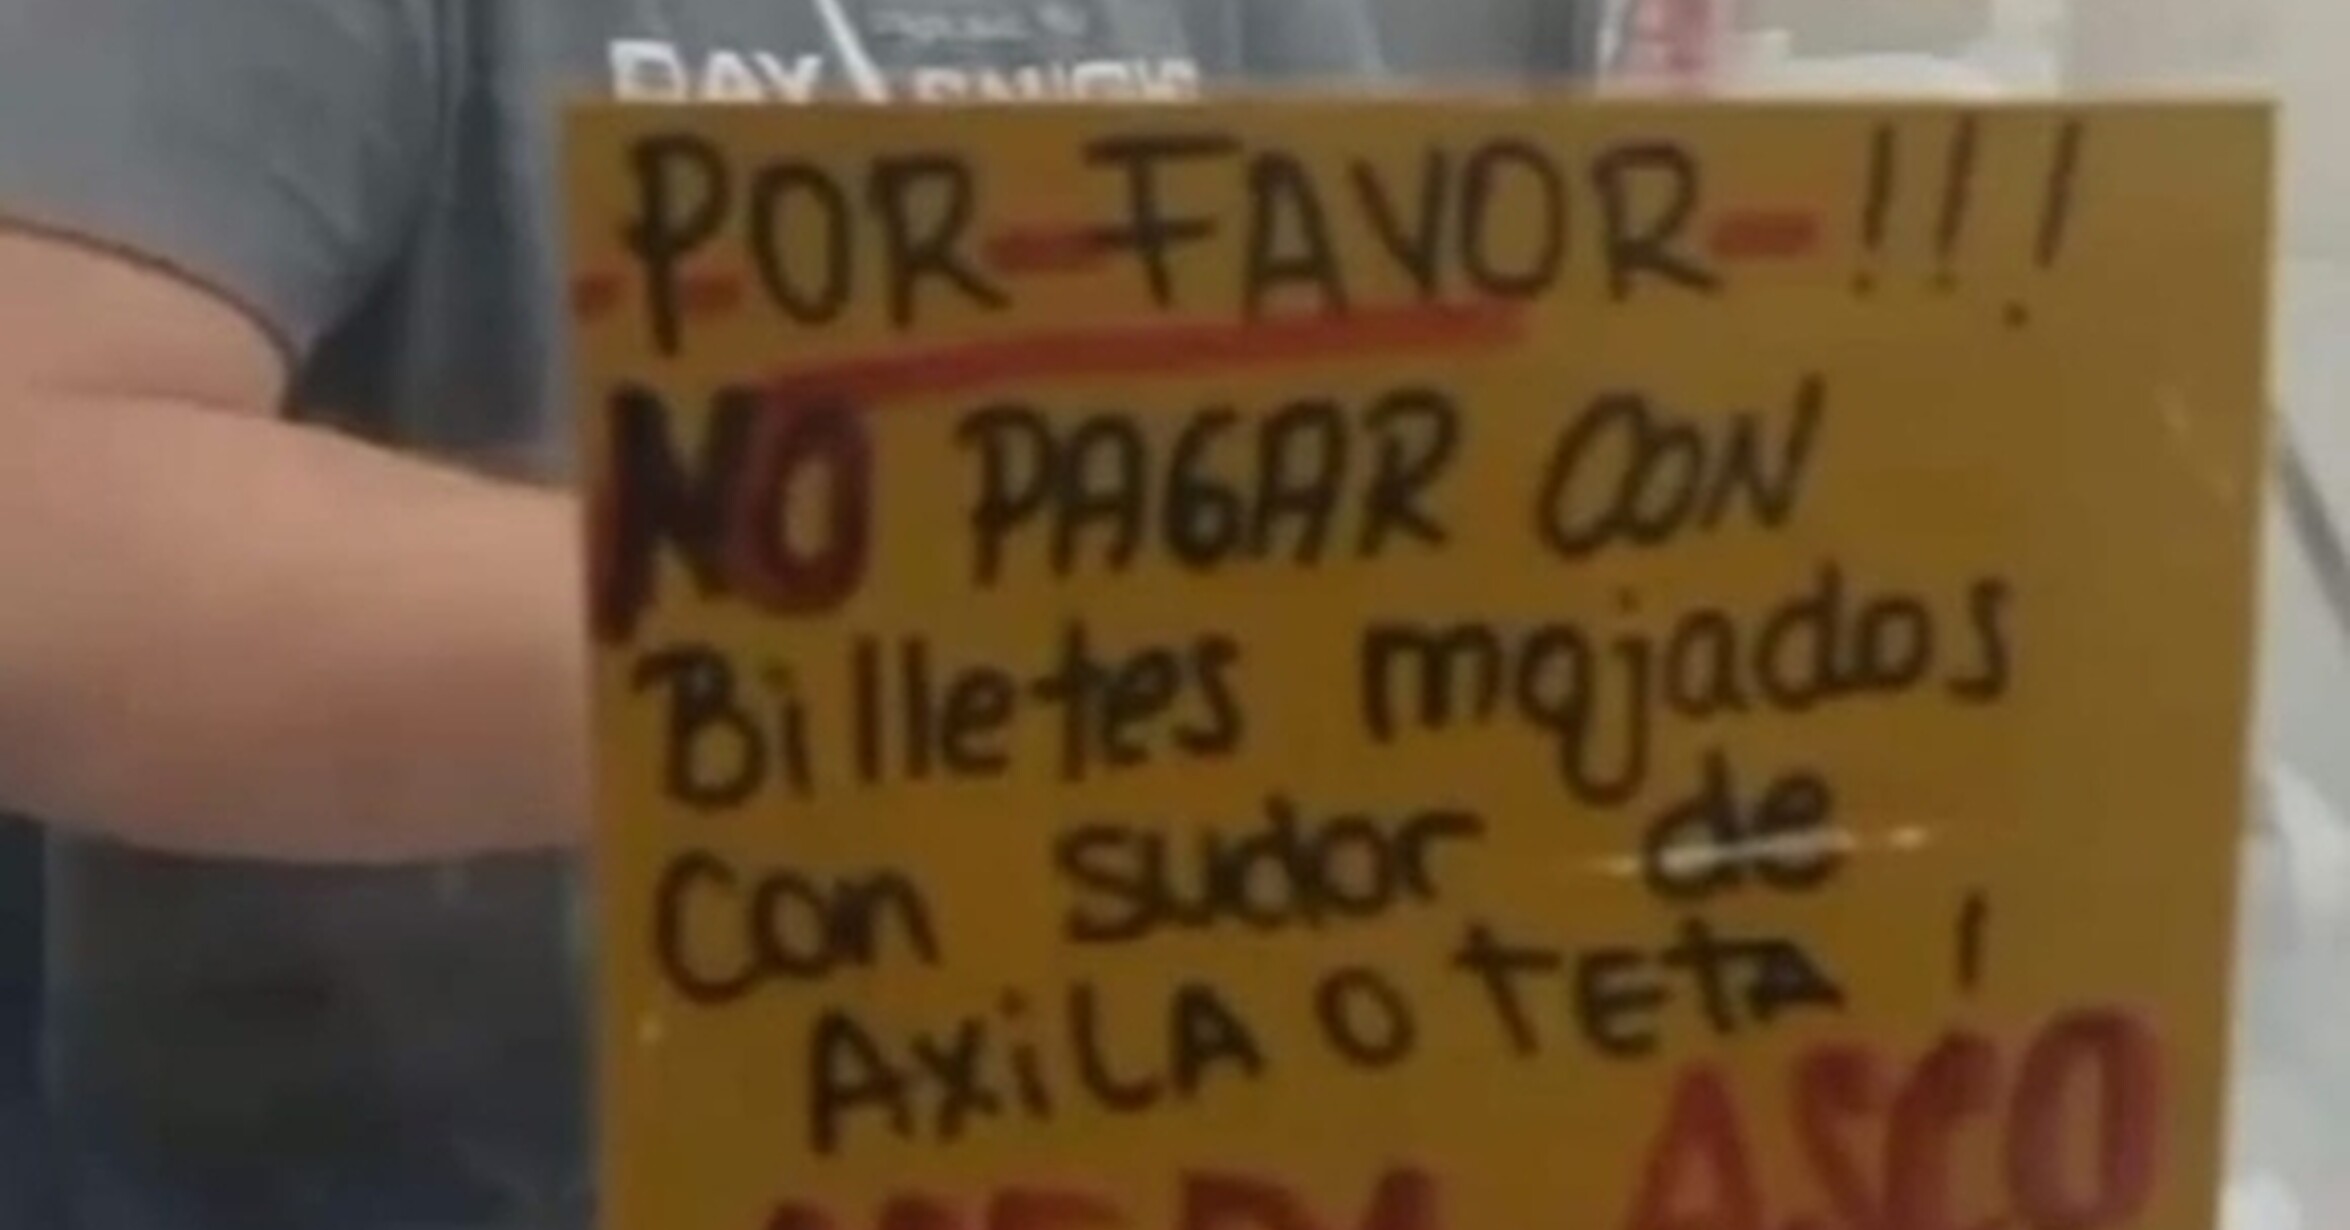 POR FAVOR !!!
NO PAGAR CON
Billetes mojados
Con sudor de
AXiLA O TETA !
ASCO